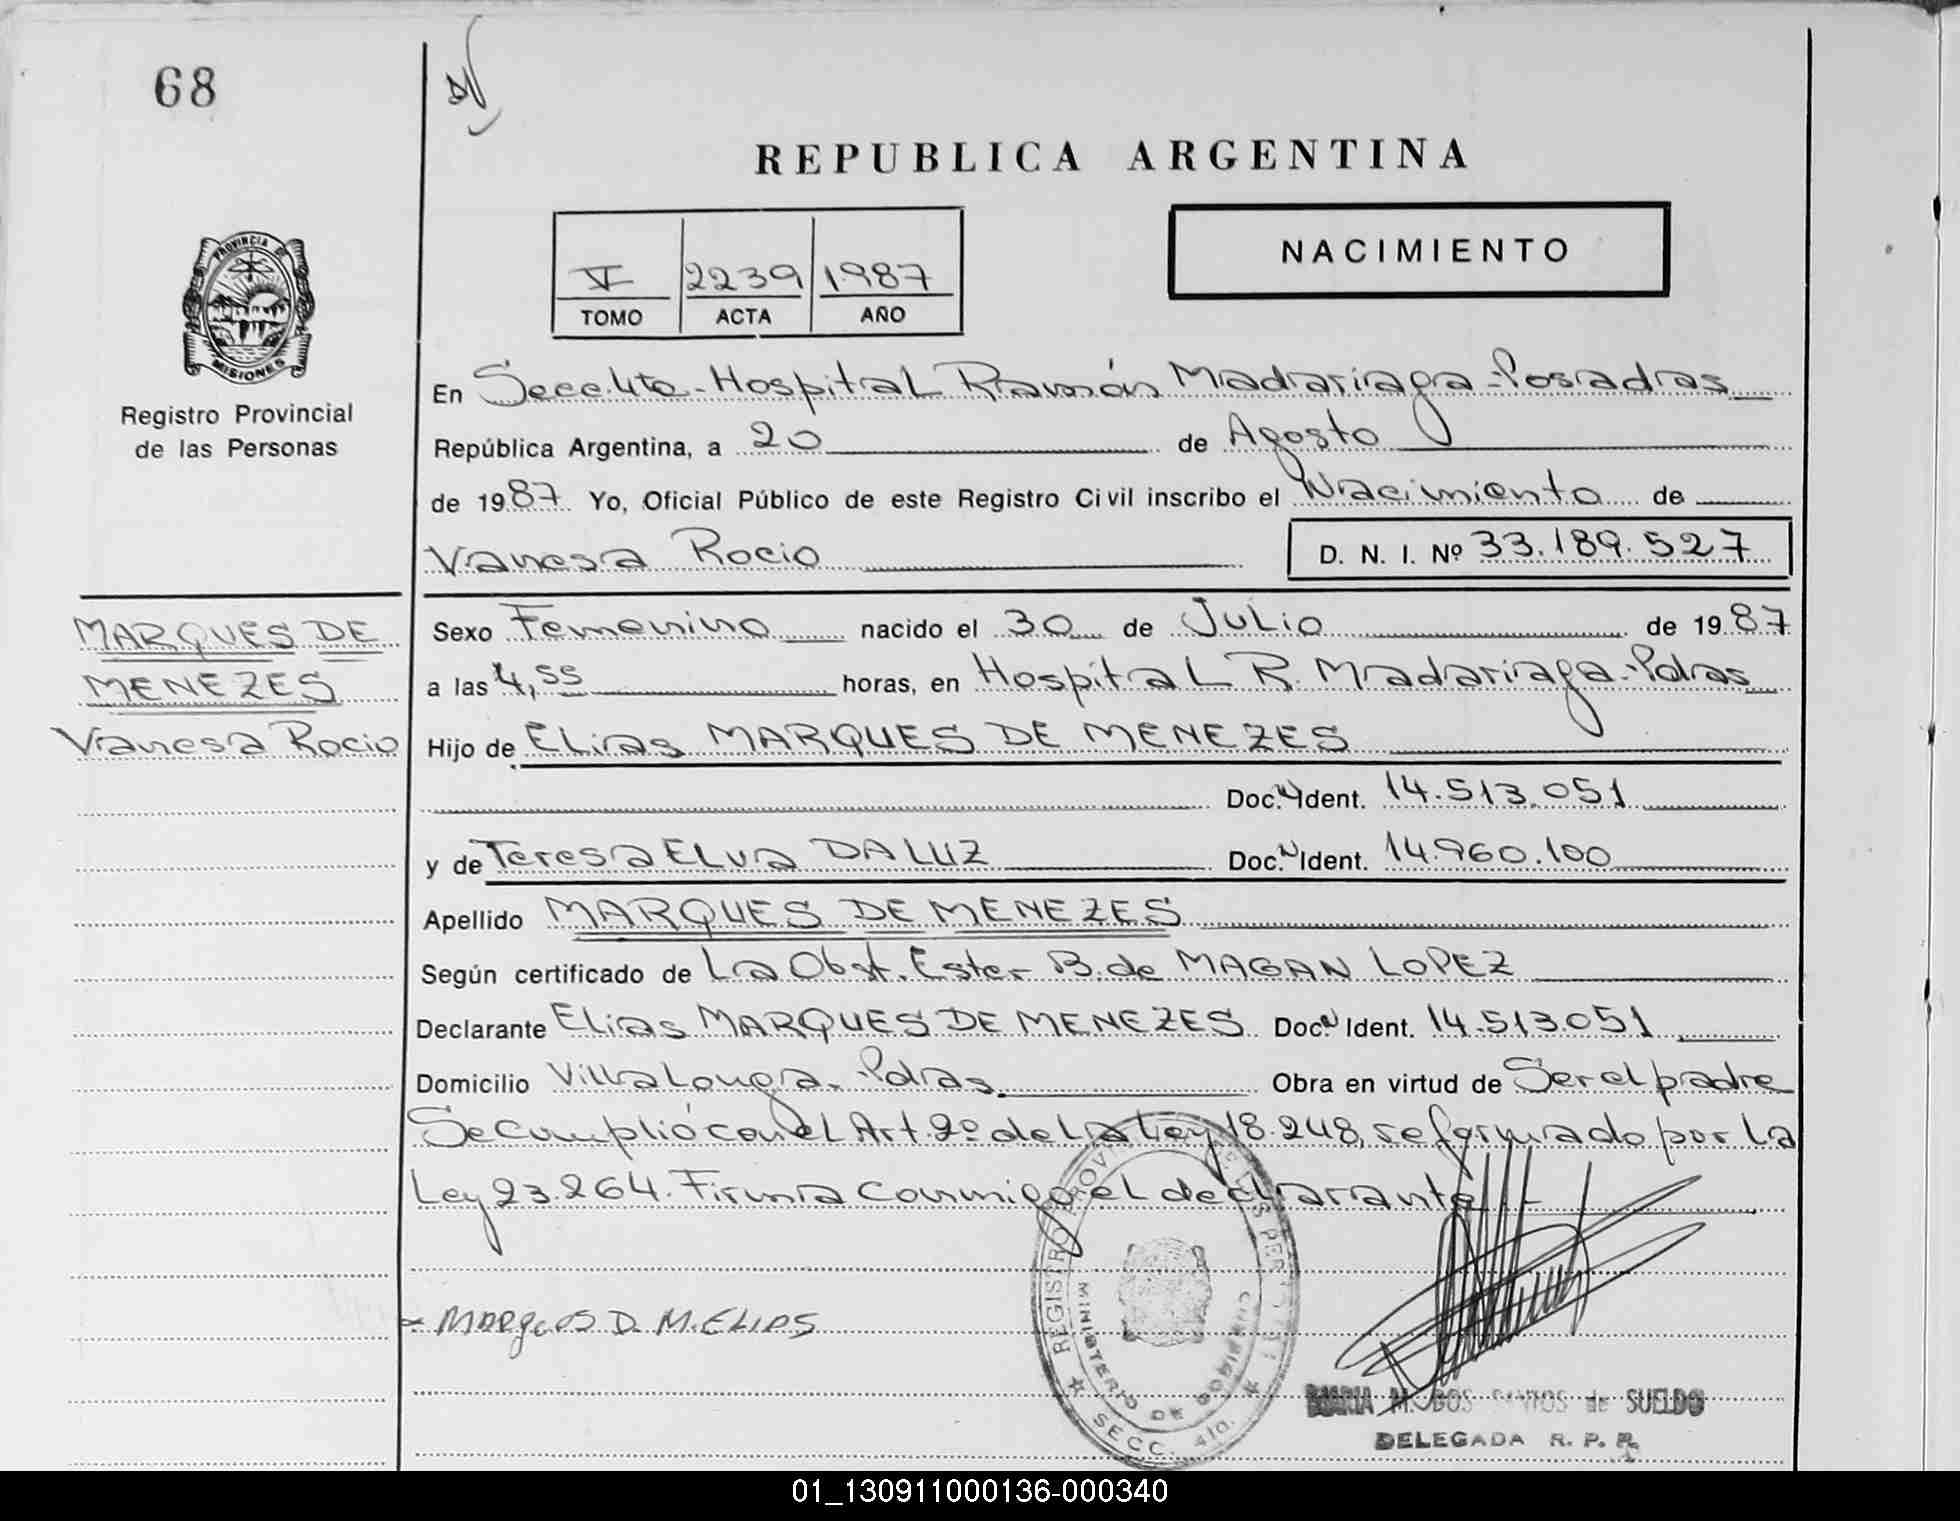 68
REPUBLICA ARGENTINA
NACIMIENTO
V 2239 1987
TOMO ACTA AÑO
PROVINCIA DE
MISIONES
Registro Provincial
de las Personas
En Secc. 4ta - Hospital Ramón Madariaga - Posadas
República Argentina, a 20 de Agosto
de 1987 Yo, Oficial Público de este Registro Civil inscribo el Nacimiento de
Vanesa Rocio D. N. I. Nº 33.189.527
MARQUES DE
MENEZES
Vanesa Rocio
Sexo Femenino nacido el 30 de Julio de 1987
a las 4,55 horas, en Hospital R. Madariaga - Pdas
Hijo de Elias MARQUES DE MENEZES
Doc. N Ident. 14.513.051
y de Teresa Elva DA LUZ Doc. N Ident. 14.960.100
Apellido MARQUES DE MENEZES
Según certificado de La Obst. Ester B. de MAGAN LOPEZ
Declarante Elias MARQUES DE MENEZES Doc. N Ident. 14.513.051
Domicilio Villa Longa - Pdas Obra en virtud de Ser el padre
Se cumplió con el Art. 2º de La Ley 18.248, reformado por La
Ley 23.264. Firma conmigo el declarante
MARQUES D. M. ELIAS
REGISTRO PROVINCIAL DE LAS PERSONAS
MINISTERIO DE GOBIERNO
SECC. 4ta.
MARIA M. DOS SANTOS de SUELDO
DELEGADA R. P. P.
01_130911000136-000340